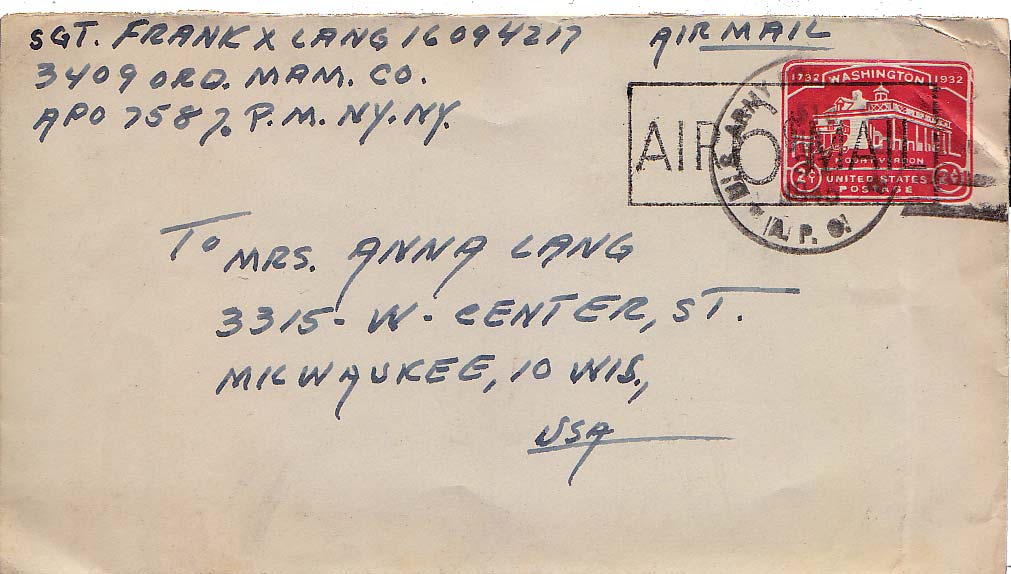 SGT. FRANK X LANG 16094217 AIR MAIL
3409 ORD. MAM. CO.
APO 758 %. P.M. NY. NY.
1732 WASHINGTON 1932
AIR 6¢ MAIL
U.S. ARMY
MOUNT VERNON
2¢ UNITED STATES 2¢
POSTAGE
A. P. O.
TO MRS. ANNA LANG
3315- W- CENTER, ST.
MILWAUKEE, 10 WIS.,
USA